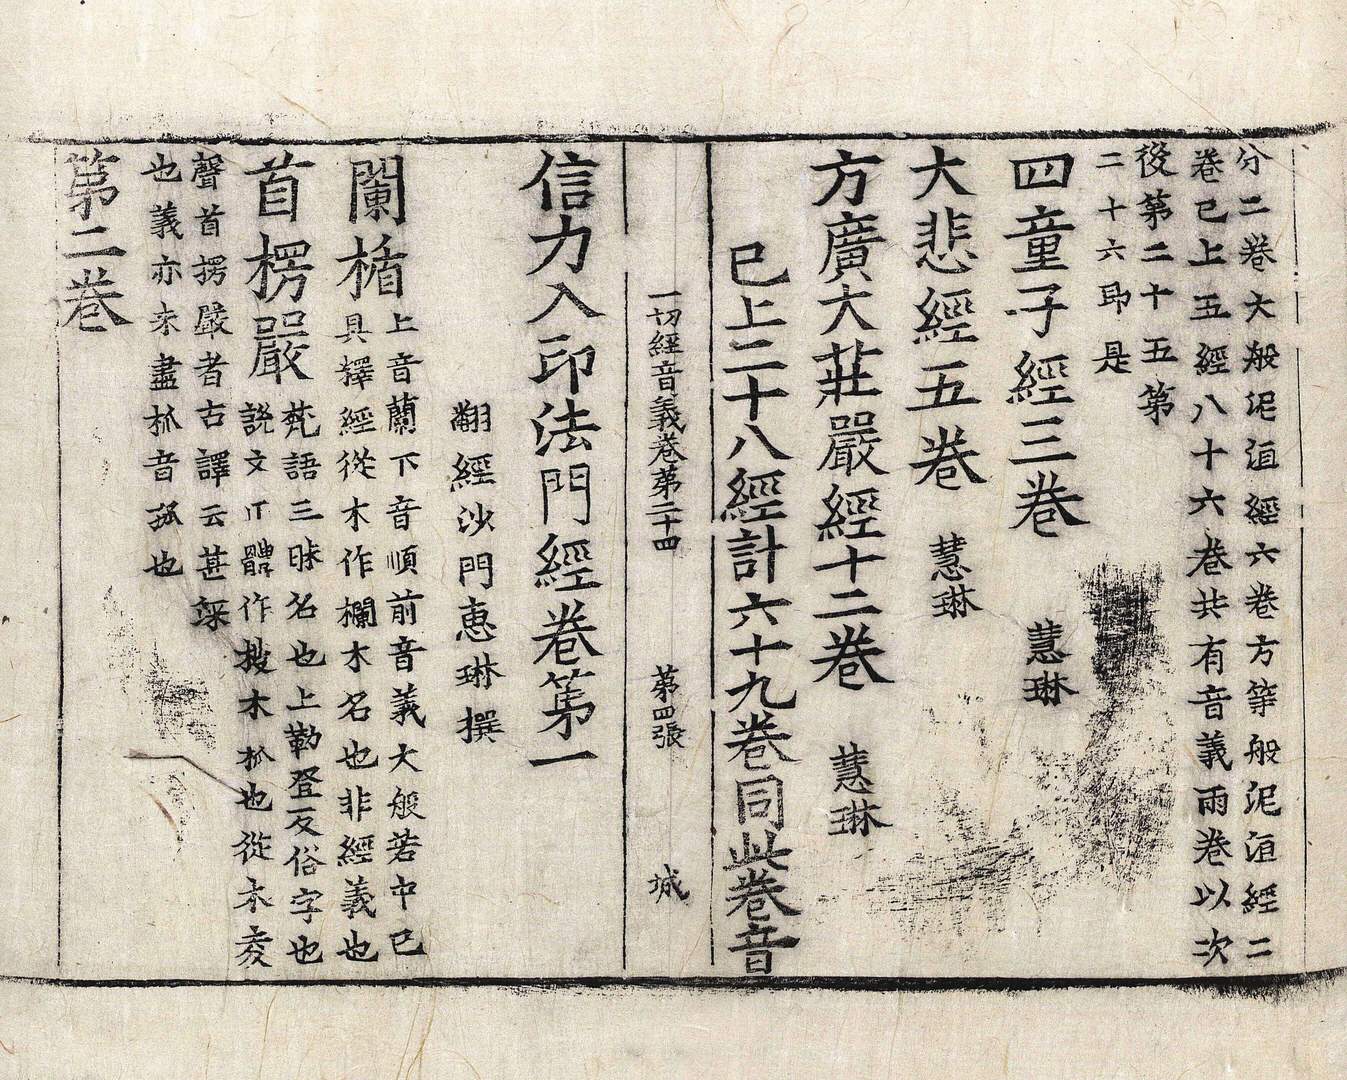 分二卷大般泥洹經六卷方等般泥洹經二
卷已上五經八十六卷共有音義兩卷以次
後第二十五第
二十六即是
四童子經三卷 慧琳
大悲經五卷 慧琳
方廣大莊嚴經十二卷 慧琳
已上二十八經計六十九卷同此卷音
一切經音義卷第二十四 第四張 城
信力入印法門經卷第一
翻經沙門惠琳撰
闌楯上音蘭下音順前音義大般若中已
具釋經從木作欄木名也非經義也
首楞嚴梵語三昧名也上勒登反俗字也
說文正體作棱木柧也從木夌
聲首楞嚴者古譯云甚深
也義亦未盡柧音孤也
第二卷